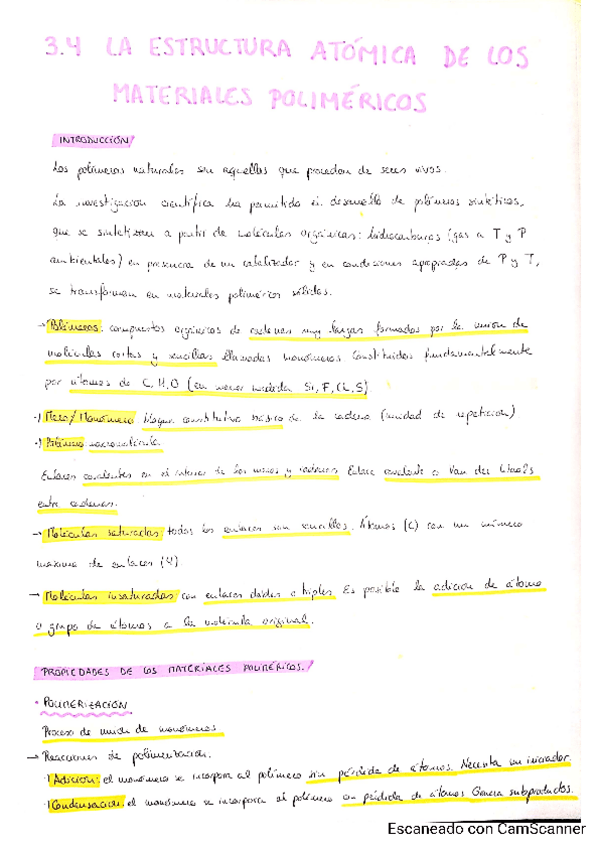 3.4 LA ESTRUCTURA ATÓMICA DE LOS
MATERIALES POLIMÉRICOS
INTRODUCCIÓN
Los polímeros naturales son aquellos que proceden de seres vivos.
La investigación científica ha permitido el desarrollo de polímeros sintéticos,
que se sintetizan a partir de moléculas orgánicas: hidrocarburos (gas a T y P
ambientales) en presencia de un catalizador y en condiciones apropiadas de P y T,
se transforman en materiales poliméricos sólidos.
→ Polímeros: compuestos orgánicos de cadenas muy largas formados por la unión de
moléculas cortas y sencillas llamadas monómeros. Constituidos fundamentalmente
por átomos de C, H, O (en menor medida Si, F, Cl, S)
Mero/Monómero bloque constitutivo básico de la cadena (unidad de repetición)
Polímero macromolécula
Enlaces covalentes en el interior de los meros y cadenas Enlace covalente o Van der Waals
entre cadenas.
→ Moléculas saturadas: todos los enlaces son sencillos. Átomos (C) con un número
máximo de enlaces (4)
→ Moléculas insaturadas: con enlaces dobles o triples Es posible la adición de átomo
o grupo de átomos a la molécula original.
PROPIEDADES DE LOS MATERIALES POLIMÉRICOS.
· POLIMERIZACIÓN
Proceso de unión de monómeros
→ Reacciones de polimerización.
Adición: el monómero se incorpora al polímero sin pérdida de átomos. Necesita un iniciador
Condensación: el monómero se incorpora al polímero con pérdida de átomos Genera subproductos.
Escaneado con CamScanner